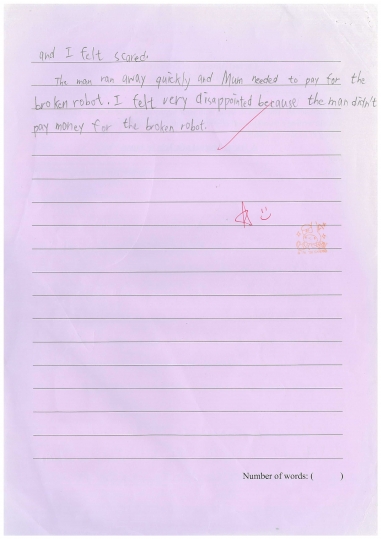 and I felt scared.
The man ran away quickly and Mum needed to pay for the
broken robot. I felt very disappointed because the man didn't
pay money for the broken robot.
Number of words: ( )